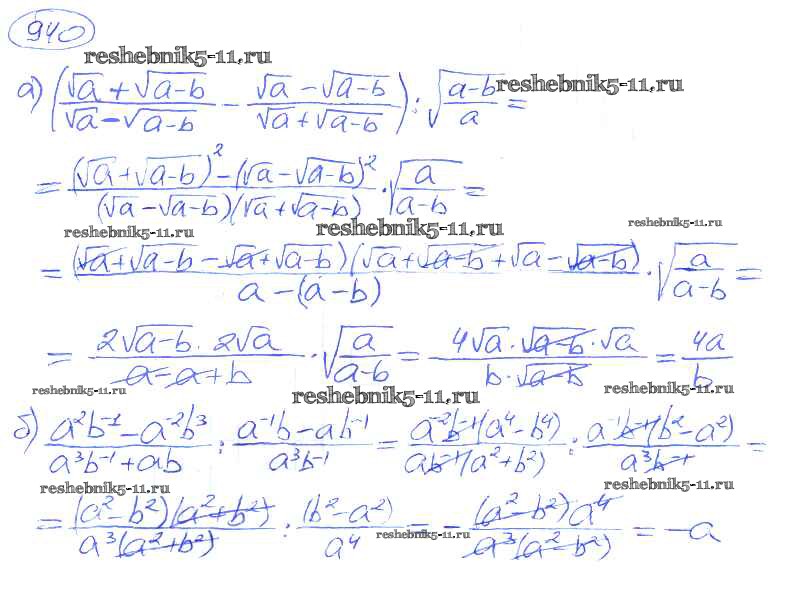 940
reshebnik5-11.ru
а) ((√a + √(a-b))/(√a - √(a-b)) - (√a - √(a-b))/(√a + √(a-b))) : √((a-b)/a) =
reshebnik5-11.ru
= ((√a + √(a-b))² - (√a - √(a-b))²)/((√a - √(a-b))(√a + √(a-b))) · √(a/(a-b)) =
reshebnik5-11.ru reshebnik5-11.ru reshebnik5-11.ru
= ((√a + √(a-b) - √a + √(a-b))(√a + √(a-b) + √a - √(a-b)))/(a - (a-b)) · √(a/(a-b)) =
= (2√(a-b) · 2√a)/(a - a + b) · √(a/(a-b)) = (4√a · √(a-b) · √a)/(b · √(a-b)) = 4a/b
reshebnik5-11.ru reshebnik5-11.ru reshebnik5-11.ru
б) (a²b⁻¹ - a⁻²b³)/(a³b⁻¹ + ab) : (a⁻¹b - ab⁻¹)/(a³b⁻¹) = (a⁻²b⁻¹(a⁴ - b⁴))/(ab⁻¹(a² + b²)) : (a⁻¹b⁻¹(b² - a²))/(a³b⁻¹) =
reshebnik5-11.ru reshebnik5-11.ru
= ((a² - b²)(a² + b²))/(a³(a² + b²)) : (b² - a²)/a⁴ = - ((a² - b²)a⁴)/(a³(a² - b²)) = -a
reshebnik5-11.ru